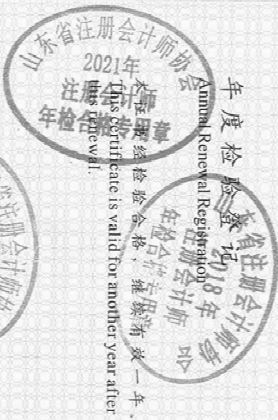 年度检验登记
Annual Renewal Registration
本证书经检验合格，继续有效一年。
This certificate is valid for another year after
this renewal.
山东省注册会计师协会
2021年
注册会计师
年检合格专用章
山东省注册会计师协会
2018年
注册会计师
年检合格专用章
省注册会计师协